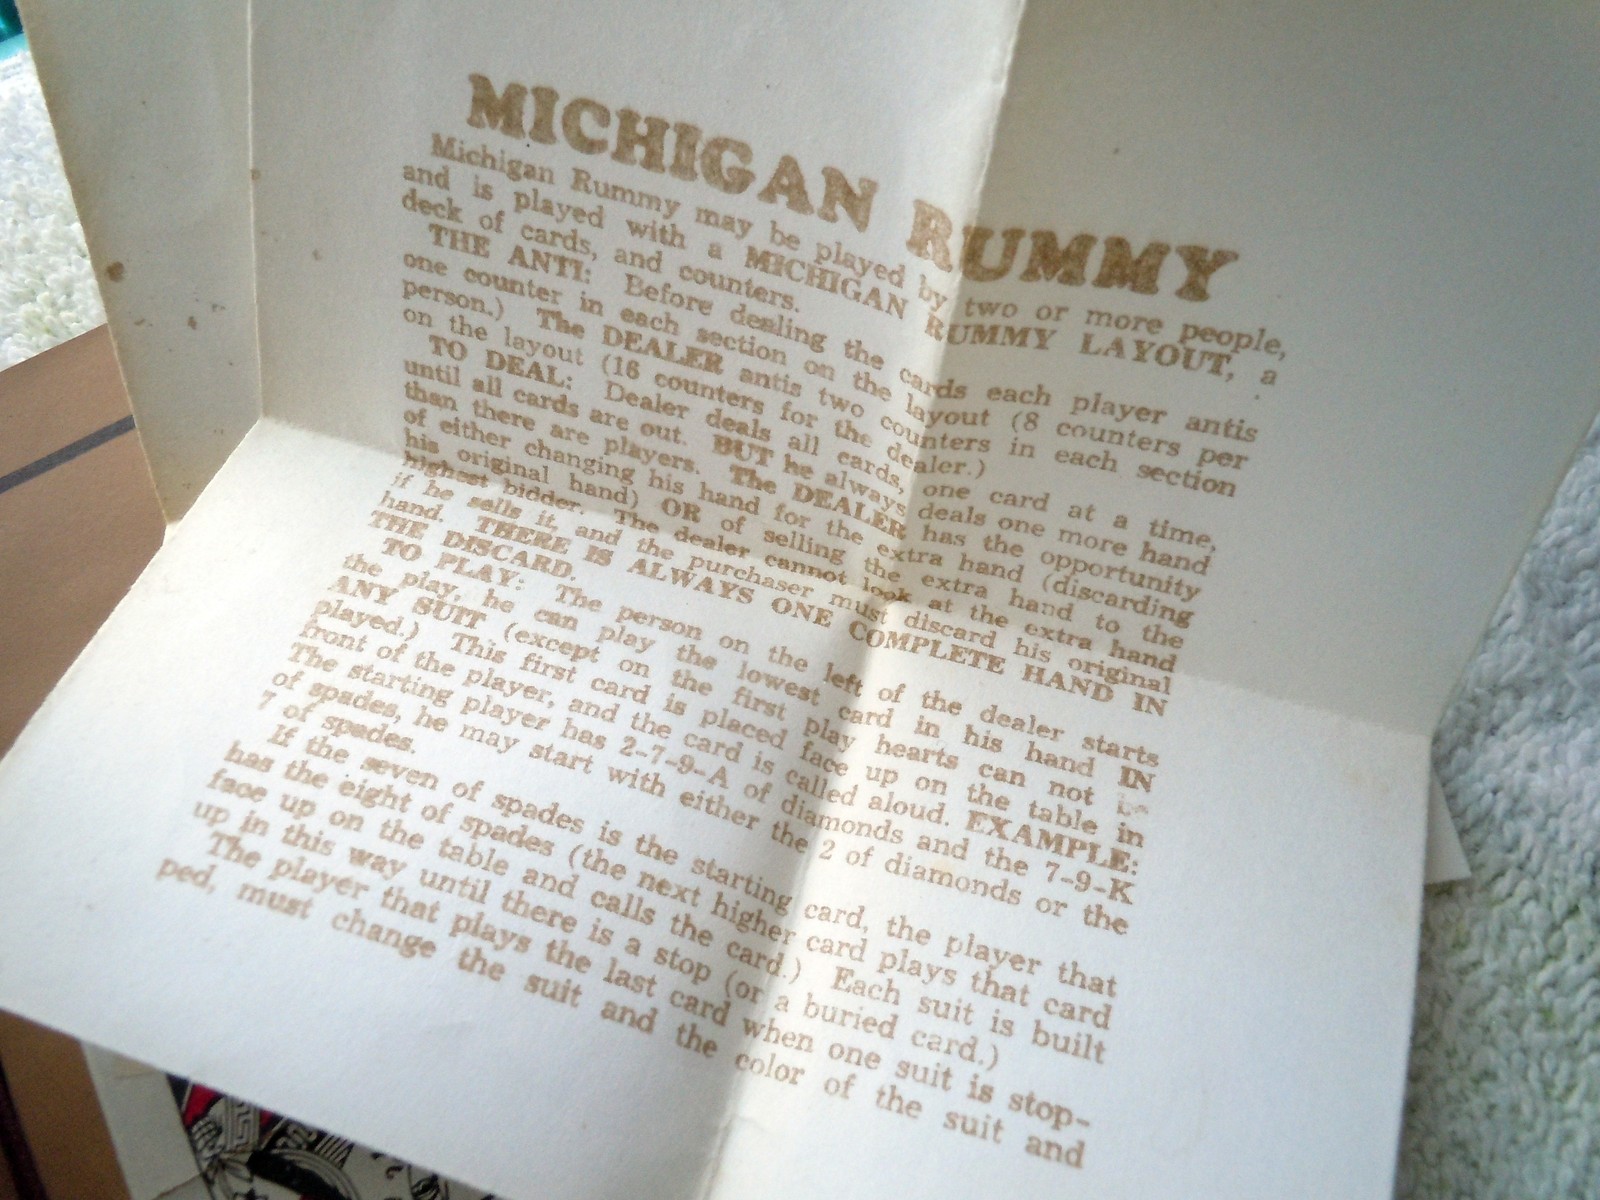 MICHIGAN RUMMY
Michigan Rummy may be played by two or more people,
and is played with a MICHIGAN RUMMY LAYOUT, a
deck of cards, and counters.
THE ANTI: Before dealing the cards each player antis
one counter in each section on the layout (8 counters per
person.) The DEALER antis two counters in each section
on the layout (16 counters for the dealer.)
TO DEAL: Dealer deals all cards, one card at a time,
until all cards are out. BUT he always deals one more hand
than there are players. The DEALER has the opportunity
of either changing his hand for the extra hand (discarding
his original hand) OR of selling the extra hand to the
highest bidder. The dealer cannot look at the extra hand
if he sells it, and the purchaser must discard his original
hand. THERE IS ALWAYS ONE COMPLETE HAND IN
THE DISCARD.
TO PLAY: The person on the left of the dealer starts
the play, he can play the lowest card in his hand IN
ANY SUIT (except on the first play hearts can not be
played.) This first card is placed face up on the table in
front of the player, and the card is called aloud. EXAMPLE:
The starting player has 2-7-9-A of diamonds and the 7-9-K
of spades, he may start with either the 2 of diamonds or the
7 of spades.
If the seven of spades is the starting card, the player that
has the eight of spades (the next higher card plays that card
face up on the table and calls the card.) Each suit is built
up in this way until there is a stop (or a buried card.)
The player that plays the last card when one suit is stop-
ped, must change the suit and the color of the suit and